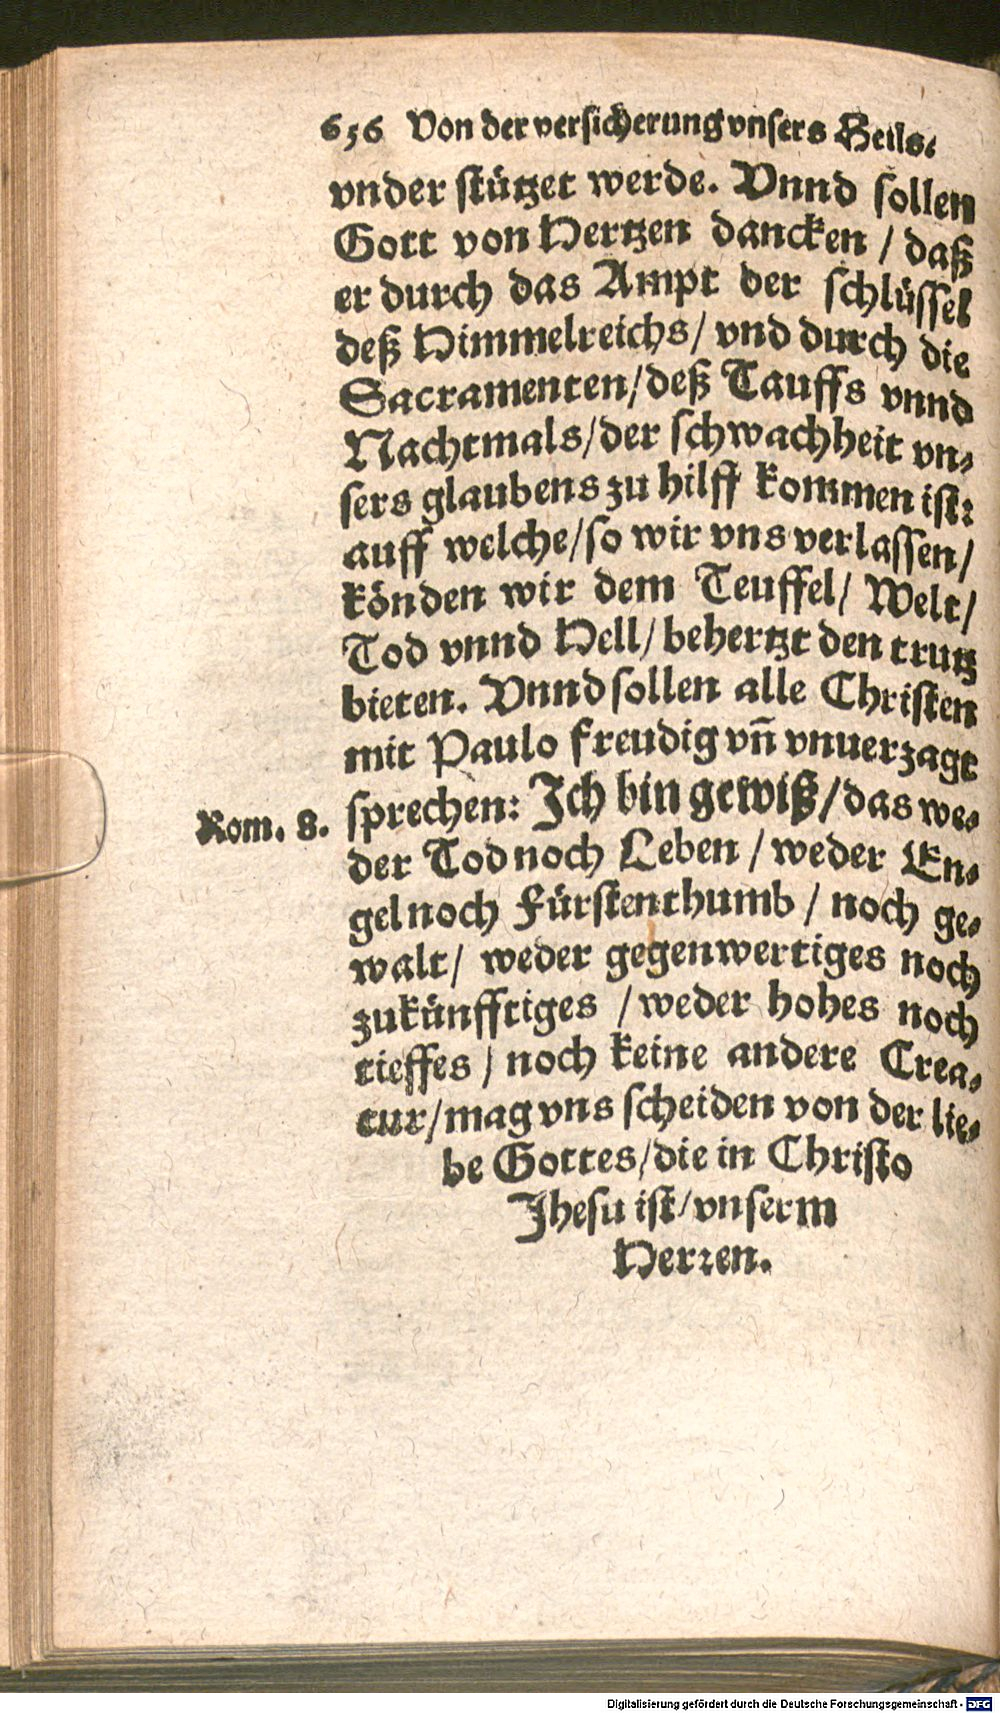 656 Von der versicherung vnsers Heils.
vnder stützet werde. Vnnd sollen
Gott von Hertzen dancken / daß
er durch das Ampt der schlüssel
deß Himmelreichs/ vnd durch die
Sacramenten/deß Tauffs vnnd
Nachtmals/der schwachheit vn-
sers glaubens zu hilff kommen ist:
auff welche/so wir vns verlassen/
könden wir dem Teuffel/ Welt/
Tod vnnd Hell/ behertzt den trutz
bieten. Vnnd sollen alle Christen
mit Paulo freudig vñ vnuerzagt
Rom. 8. sprechen: Ich bin gewiß/das we-
der Tod noch Leben / weder En-
gel noch Fürstenthumb / noch ge-
walt/ weder gegenwertiges noch
zukünfftiges /weder hohes noch
tieffes / noch keine andere Crea-
tur/mag vns scheiden von der lie-
be Gottes/die in Christo
Jhesu ist/vnserm
Herren.
Digitalisierung gefördert durch die Deutsche Forschungsgemeinschaft - DFG